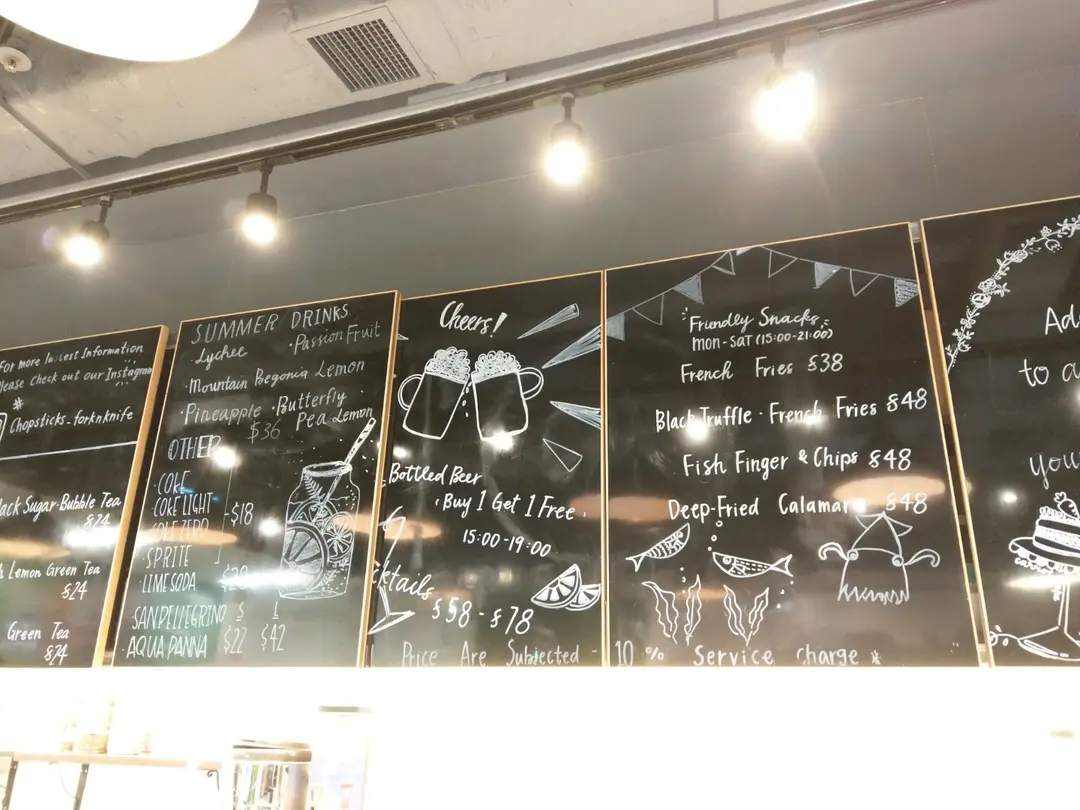 For more latest Information
please check out our Instagram
#
Chopsticks-forknknife
Black Sugar Bubble Tea
$24
Lemon Green Tea
$24
Green Tea
$24
SUMMER DRINKS
·Lychee ·Passion Fruit
·Mountain Begonia Lemon
·Pineapple ·Butterfly
Pea Lemon
$36
OTHER
·COKE
·COKE LIGHT
·COKE ZERO
·SPRITE
-$18
·LIME SODA
S L
SANPELLEGRINO
·AQUA PANNA $22 $42
Cheers!
Bottled Beer
·Buy 1 Get 1 Free·
15:00-19:00
$58 - $78
Price Are Subjected - 10 % Service charge *
Friendly Snacks
MON-SAT (15:00-21:00)
French Fries $38
Black Truffle · French Fries $48
Fish Finger & Chips $48
Deep-Fried Calamari $48
to